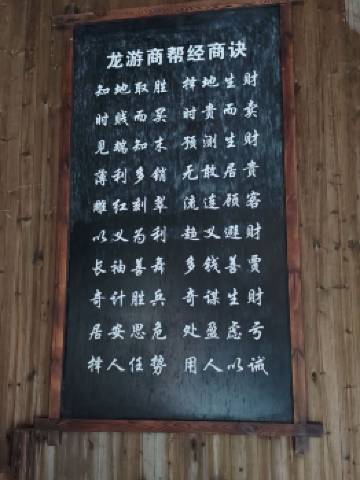 龙游商帮经商诀
知地取胜 择地生财
时贱而买 时贵而卖
见端知末 预测生财
薄利多销 无敢居贵
雕红刻翠 流连顾客
以义为利 趋义避财
长袖善舞 多钱善贾
奇计胜兵 奇谋生财
居安思危 处盈虑亏
择人任势 用人以诚